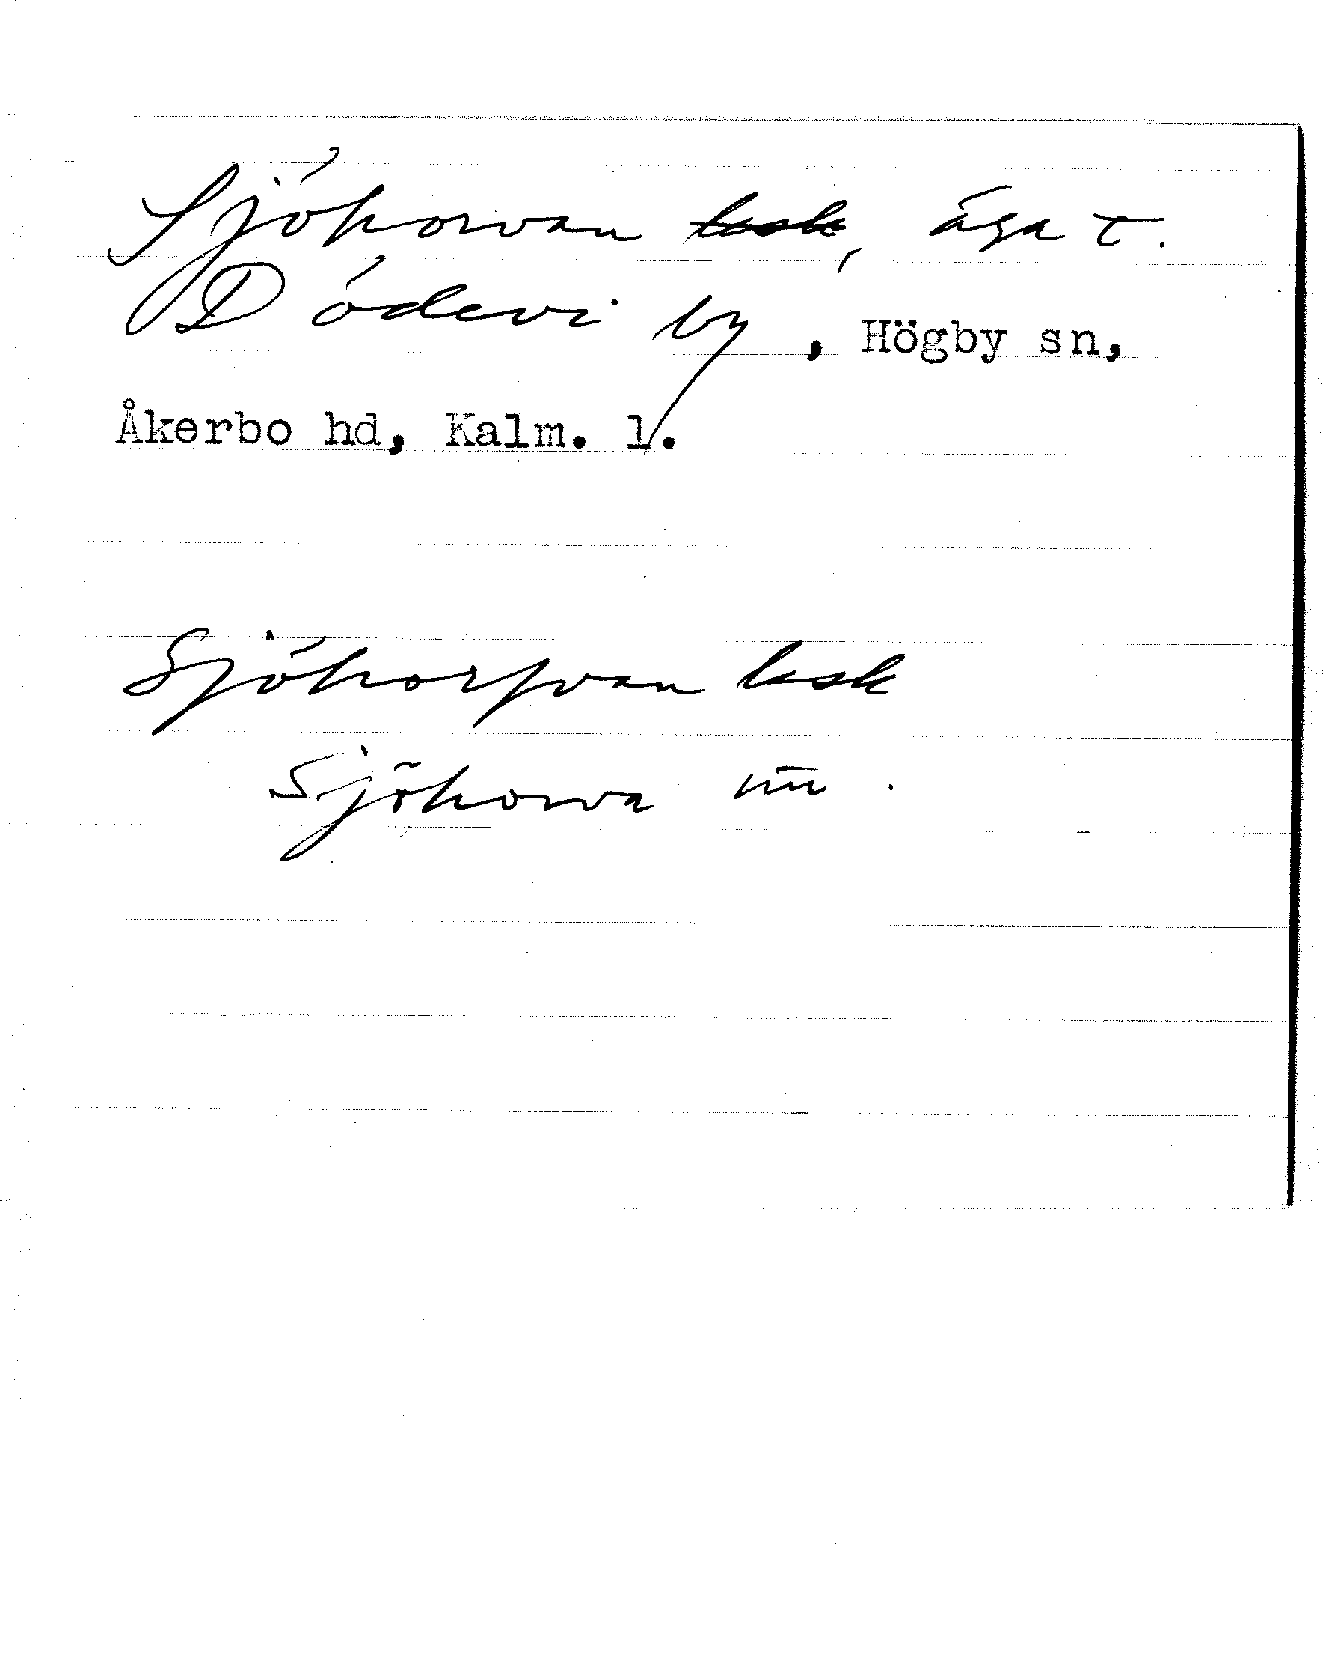 Sjöhorvan besk, äga t.
Dödevi by, Högby sn,
Åkerbo hd, Kalm. l.
Sjöhorfvan besk
Sjöhorva un .